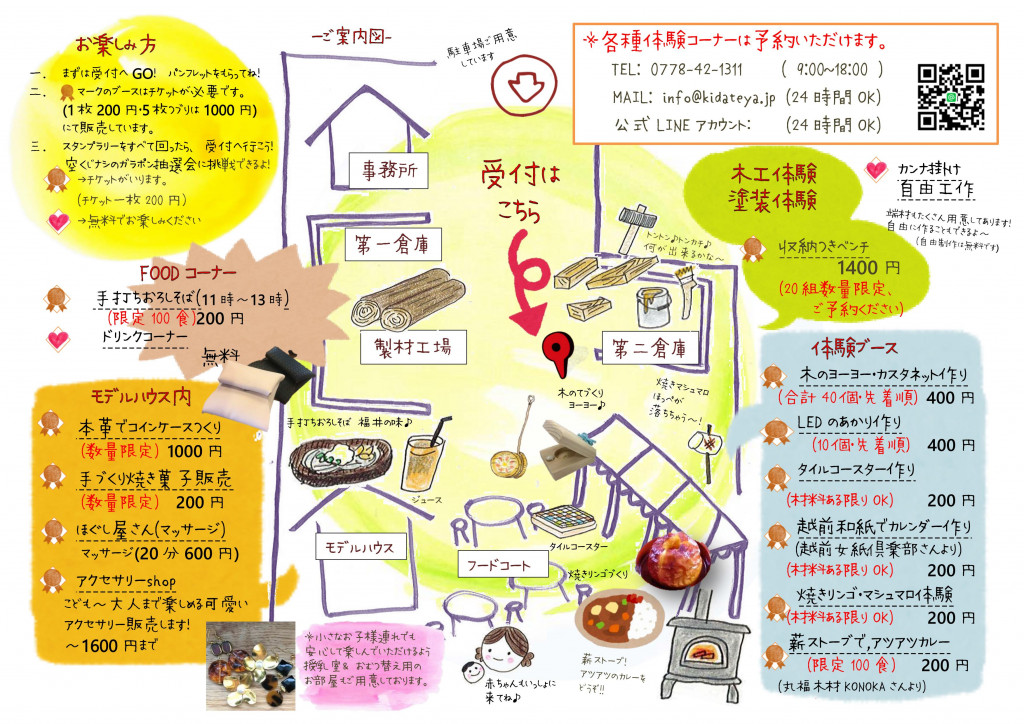 お楽しみ方
一. まずは受付へGO! パンフレットをもらってね!
二. マークのブースはチケットが必要です。
(1枚200円・5枚つづりは1000円)
にて販売しています。
三. スタンプラリーをすべて回ったら、受付へ行こう!
空くじナシのガラポン抽選会に挑戦できるよ!
→チケットがいります。
(チケット一枚200円)
→無料でお楽しみください
FOODコーナー
手打ちおろしそば(11時~13時)
(限定100食)200円
ドリンクコーナー
無料
モデルハウス内
本革でコインケースつくり
(数量限定) 1000円
手づくり焼き菓子販売
(数量限定) 200円
ほぐし屋さん(マッサージ)
マッサージ(20分600円)
アクセサリーshop
こども~大人まで楽しめる可愛い
アクセサリー販売します!
~1600円まで
-ご案内図-
駐車場ご用意
しています
事務所
第一倉庫
製材工場
受付は
こちら
トントン♪トンカチ♪
何が出来るかな~
第二倉庫
木のてづくり
ヨーヨー♪
焼きマシュマロ
ほっぺが
落ちちゃう~!
手打ちおろしそば 福井の味♪
ジュース
モデルハウス
フードコート
タイルコースター
焼きリンゴづくり
※小さなお子様連れでも
安心して楽しんでいただけるよう
授乳室&おむつ替え用の
お部屋もご用意しております。
赤ちゃんもいっしょに
来てね♪
薪ストーブ!
アツアツのカレーを
どうぞ!!
※各種体験コーナーは予約いただけます。
TEL: 0778-42-1311 ( 9:00~18:00 )
MAIL: info@kidateya.jp (24時間OK)
公式LINEアカウント: (24時間OK)
木工体験
塗装体験
カンナ掛け
自由工作
端材もたくさん用意してあります!
自由に作ることもできるよ~
(自由制作は無料です)
収納つきベンチ
1400円
(20組数量限定、
ご予約ください)
体験ブース
木のヨーヨー・カスタネット作り
(合計40個・先着順) 400円
LEDのあかり作り
(10個・先着順) 400円
タイルコースター作り
(材料ある限りOK) 200円
越前和紙でカレンダー作り
(越前女紙倶楽部さんより)
(材料ある限りOK) 200円
焼きリンゴ・マシュマロ体験
(材料ある限りOK) 200円
薪ストーブで,アツアツカレー
(限定100食) 200円
(丸福木材KONOKAさんより)